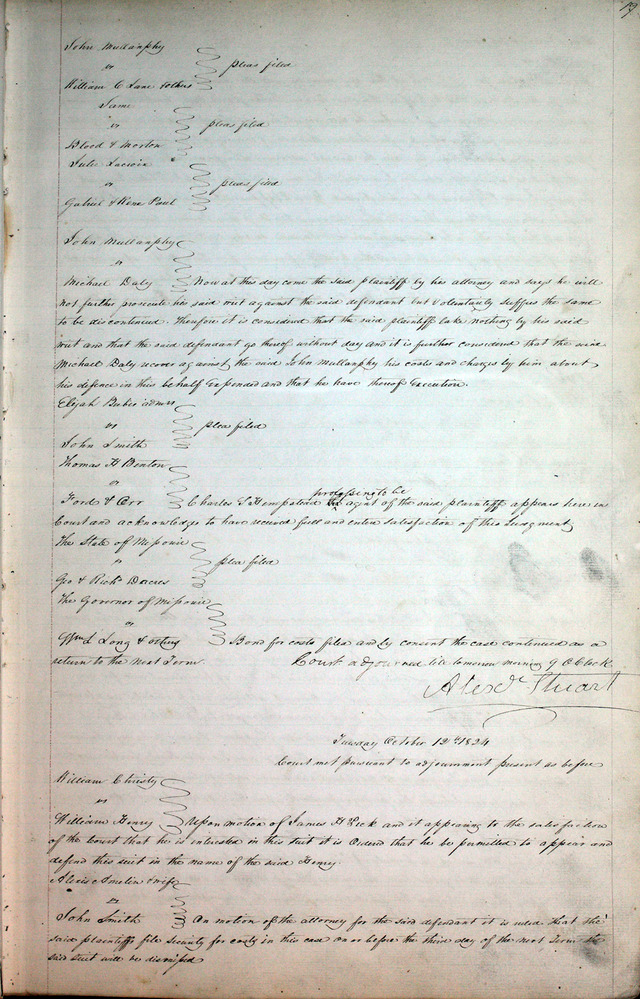 John Mullanphy
vs
pleas filed
William C Lane & others
Same
vs
pleas filed
Blood & Morton
Julie Lacroix
vs
pleas filed
Gabriel & Rene Paul
John Mullanphy
vs
Michael Daly Now at this day come the said plaintiff by his attorney and says he will
not further prosecute his said writ against the said defendant but voluntarily suffers the same
to be discontinued. Therefore it is considered that the said plaintiff take nothing by his said
writ and that the said defendant go thereof without day and it is further considered that the said
Michael Daly recover against the said John Mullanphy his costs and charges by him about
his defence in this behalf expended and that he have thereof Execution.
Elijah
vs
plea filed
John Smith
Thomas H Benton
vs
professing to be
Ford & Orr Charles S Hempstead the agent of the said plaintiff appears here in
Court and acknowledge to have received full and entire satisfaction of this Judgment
The State of Missouri
vs
plea filed
Geo & Richd
The Governor of Missouri
vs
Wm L Long & others Bond for costs filed and by consent the case continued as a
return to the next Term. Court adjourned till tomorrow morning 9 O Clock
Alexr Stuart
Tuesday October 12th 1824
Court met pursuant to adjournment present as before
William Christy
vs
William Henry Upon motion of James H Peck and it appearing to the satisfaction
of the Court that he is interested in this suit it is Ordered that he be permitted to appear and
defend this suit in the name of the said Henry.
Alexis Amelin & wife
vs
John Smith On motion of the attorney for the said defendant it is ruled that the
said plaintiffs file security for costs in this case on or before the third day of the next Term the
said suit will be dismissed